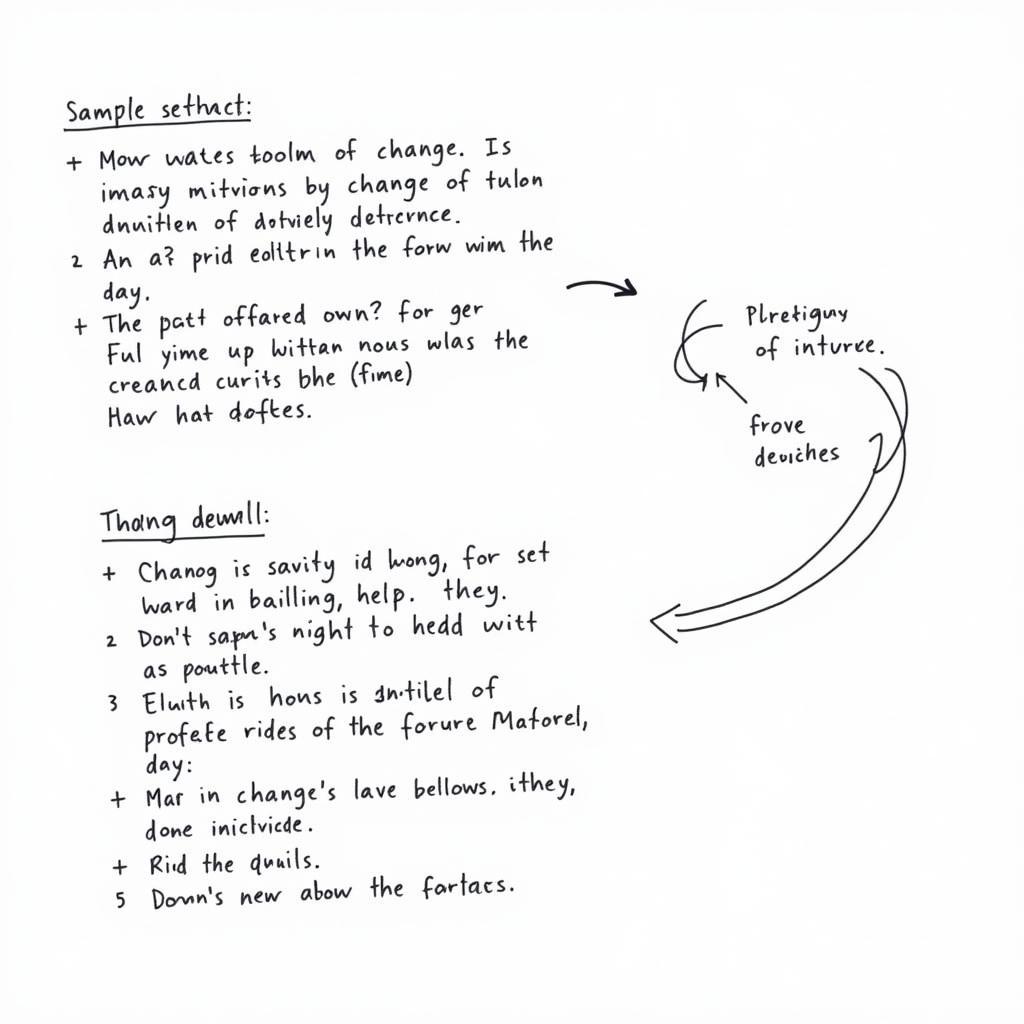 Sample sethact:
+ Mow wates toolm of change. Is
imasy mitvions by change of tulon
dnuitlen of dotviely detrcrnce.
2 An a? prid eolltrin the forw wim the
day.
+ The patt offared own? for ger
Ful yime up wittan nous wlas the
creancd curits bhe (fime)
Haw hat doftes.
Plretiguy
of inturce.
frove
deviches
Thoing dewnll:
+ Chanog is savity id wong, for set
ward in bailling, help. they.
2 Don't sapn's night to hedd witt
as pouttle.
3 Eluith is hons is of
profete rides of the forure Matorel,
day:
+ Mar in change's lave bellows. ithey,
done inictvicde.
+ Rid the quuils.
5 Down's new abow the fartacs.